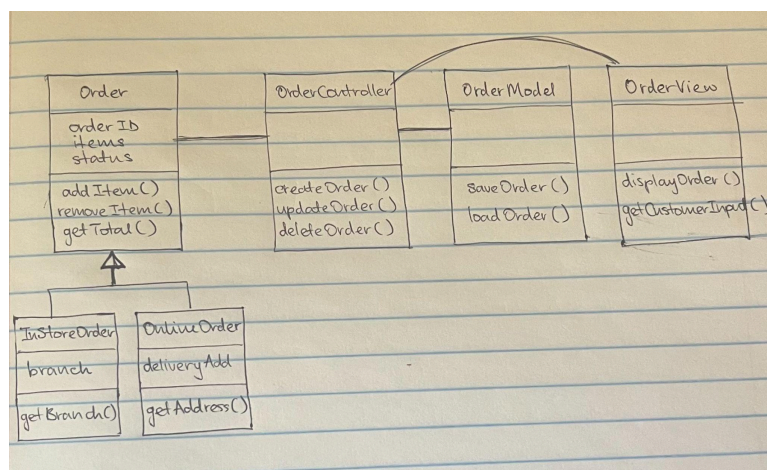 Order
orderID
items
status
addItem()
removeItem()
getTotal()
OrderController
createOrder()
updateOrder()
deleteOrder()
OrderModel
saveOrder()
loadOrder()
OrderView
displayOrder()
getCustomerInput()
InStoreOrder
branch
getBranch()
OnlineOrder
deliveryAdd
getAddress()